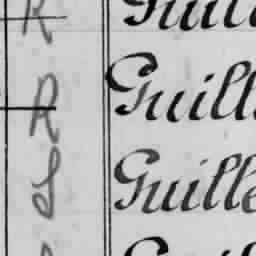 R Guill
R Guill
S Guille